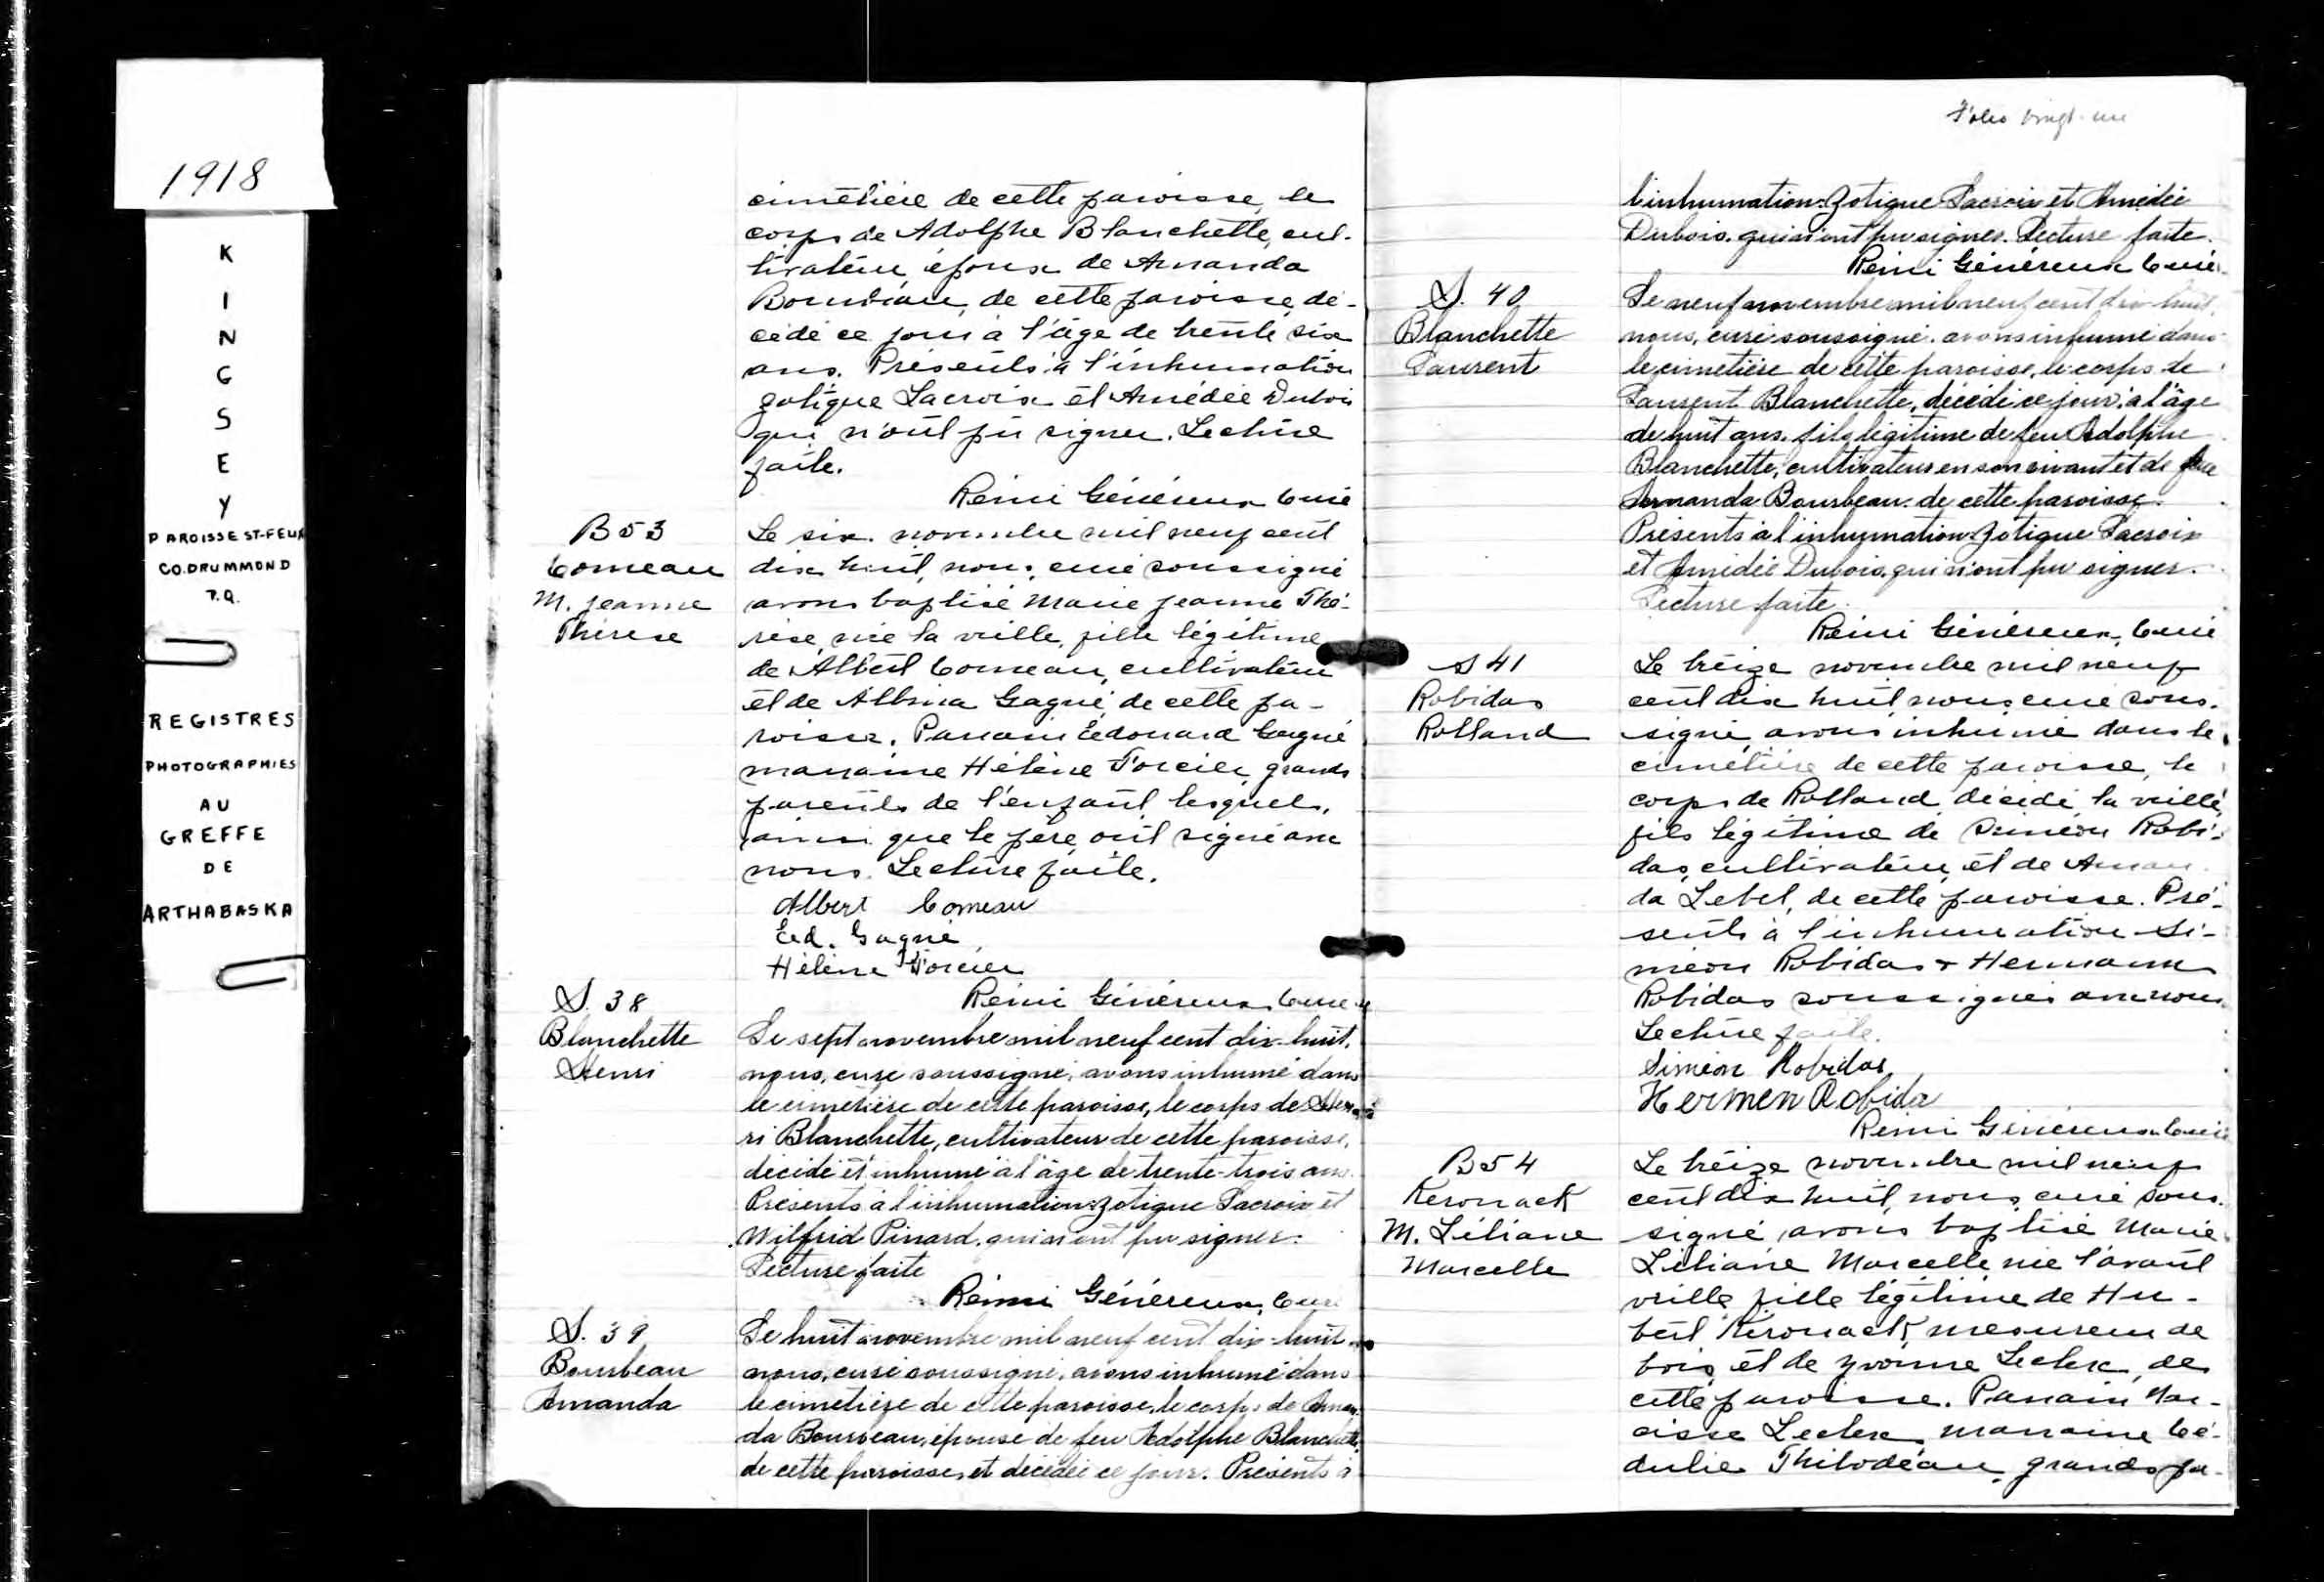 1918
K
I
N
G
S
E
Y
PAROISSE ST-FELIX
CO. DRUMMOND
P.Q.
REGISTRES
PHOTOGRAPHIES
AU
GREFFE
DE
ARTHABASKA
cimetière de cette paroisse, le
corps de Adolphe Blanchette, cul-
tivateur, époux de Amanda
Bourbeau, de cette paroisse, dé-
cédé ce jour à l'âge de trente six
ans. Présents à l'inhumation
Zotique Lacroix et Amédée Dubois
qui n'ont pu signer. Lecture
faite.
Rémi Généreux Curé
B 53
Comeau
M. Jeanne
Thérèse
Le six novembre mil neuf cent
dix huit, nous, curé soussigné
avons baptisé Marie Jeanne Thé-
rèse, née la veille, fille légitime
de Albert Comeau, cultivateur
et de Albina Gagné, de cette pa-
roisse. Parrain Edouard Gagné
marraine Hélène Forcier, grands
parents de l'enfant lesquels,
ainsi que le père ont signé avec
nous. Lecture faite.
Albert Comeau
Ed. Gagné
Hélène Forcier
Rémi Généreux Curé
S. 38
Blanchette
Henri
Le sept novembre mil neuf cent dix-huit,
nous, curé soussigné, avons inhumé dans
le cimetière de cette paroisse, le corps de Hen-
ri Blanchette, cultivateur de cette paroisse,
décédé et inhumé à l'âge de trente-trois ans.
Présents à l'inhumation: Zotique Lacroix et
Wilfrid Pinard, qui n'ont pu signer.
Lecture faite
Rémi Généreux, Curé
S. 39
Bourbeau
Amanda
Le huit novembre mil neuf cent dix-huit
nous, curé soussigné, avons inhumé dans
le cimetière de cette paroisse, le corps de Aman-
da Bourbeau, épouse de feu Adolphe Blanchette,
de cette paroisse, et décédée ce jour. Présents à
Folio vingt-un
l'inhumation: Zotique Lacroix et Amédée
Dubois, qui n'ont pu signer. Lecture faite.
Rémi Généreux Curé
S. 40
Blanchette
Laurent
Le neuf novembre mil neuf cent dix-huit,
nous, curé soussigné, avons inhumé dans
le cimetière de cette paroisse, le corps de
Laurent Blanchette, décédé ce jour, à l'âge
de huit ans, fils légitime de feu Adolphe
Blanchette, cultivateur en son vivant et de feue
Amanda Bourbeau, de cette paroisse.
Présents à l'inhumation: Zotique Lacroix
et Amédée Dubois, qui n'ont pu signer.
Lecture faite.
Rémi Généreux, Curé
S 41
Robidas
Rolland
Le treize novembre mil neuf
cent dix huit, nous, curé sous-
signé, avons inhumé dans le
cimetière de cette paroisse, le
corps de Rolland décédé la veille,
fils légitime de Siméon Robi-
das, cultivateur, et de Aman
da Lebel, de cette paroisse. Pré-
sents à l'inhumation Si-
méon Robidas & Hermann
Robidas soussignés avec nous
Lecture faite.
Siméon Robidas
Hermen Robida
Rémi Généreux Curé
B 54
Keronack
M. Liliane
Marcelle
Le treize novembre mil neuf
cent dix huit, nous, curé sous-
signé, avons baptisé Marie
Liliane Marcelle née l'avant
veille, fille légitime de Hu-
bert Keronack, mesureur de
bois, et de Yvonne Leclerc, de
cette paroisse. Parrain Nar-
cisse Leclerc, marraine Cé-
dulie Thibodeau, grands pa-